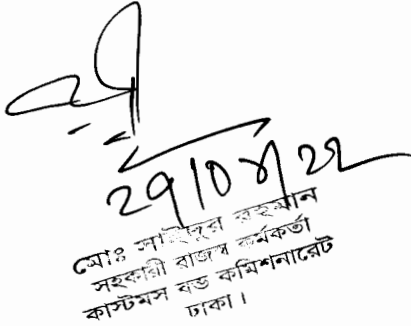 ২৭/০৪/২২
মোঃ সাইদুর রহমান
সহকারী রাজস্ব কর্মকর্তা
কাস্টমস বন্ড কমিশনারেট
ঢাকা।